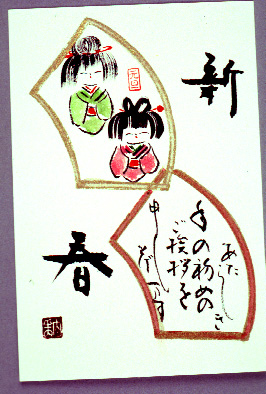 新
春
あたらしき
年の初めの
ご挨拶を
申し